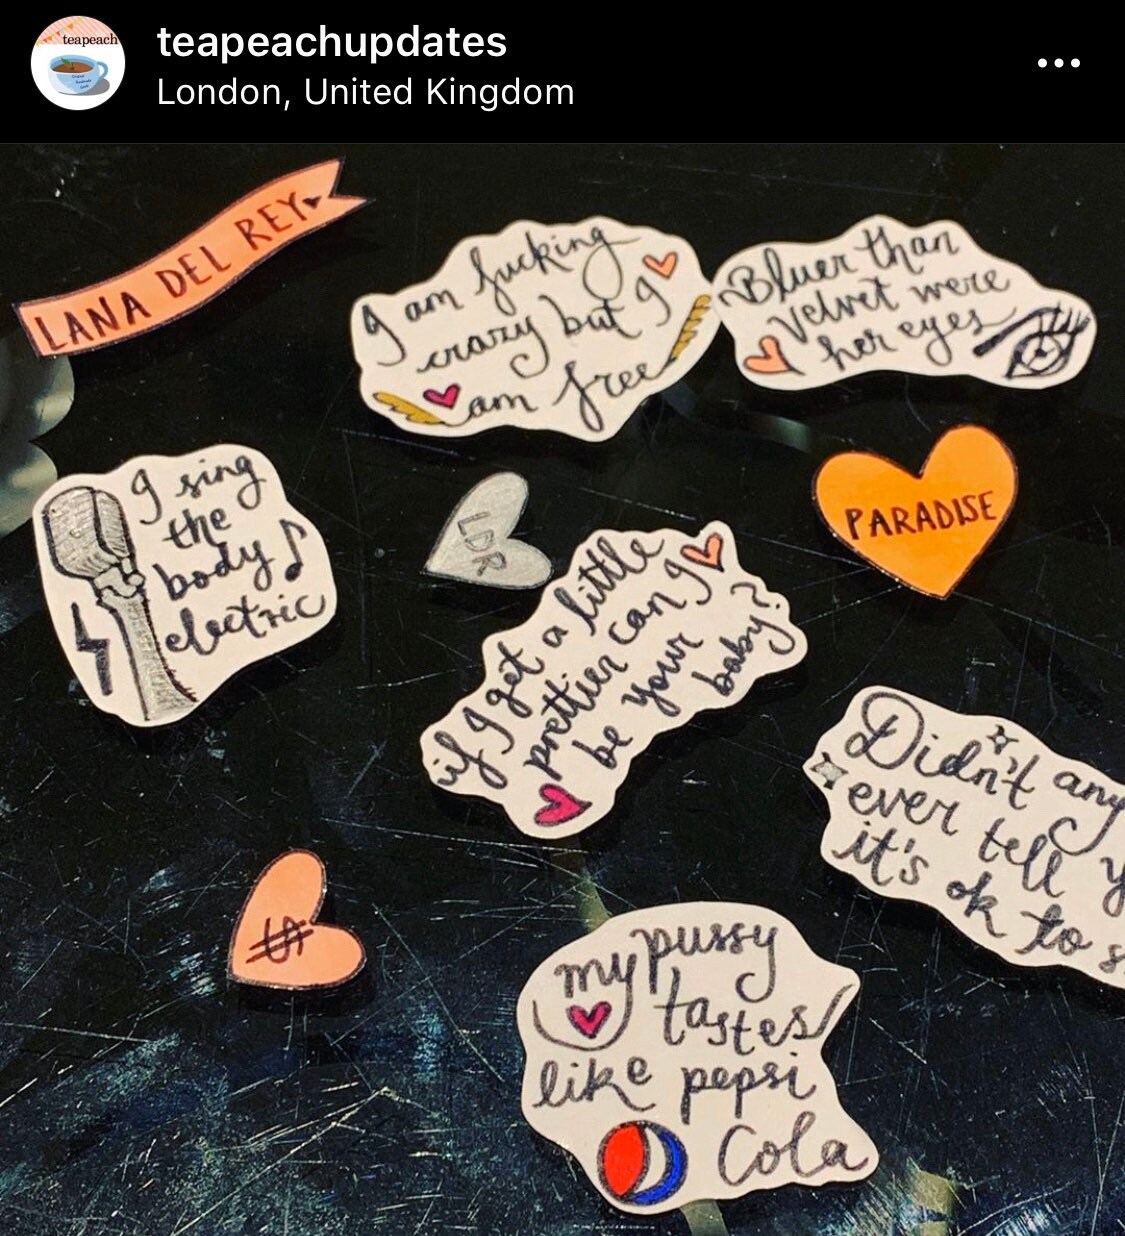 teapeach
teapeachupdates
London, United Kingdom
LANA DEL REY
I am fucking
crazy but I
am free
Bluer than
velvet were
her eyes
I sing
the
body
electric
LDR
PARADISE
if I get a little
prettier can I
be your
baby?
Didn't any
ever tell y
it's ok to s
my pussy
tastes
like pepsi
Cola